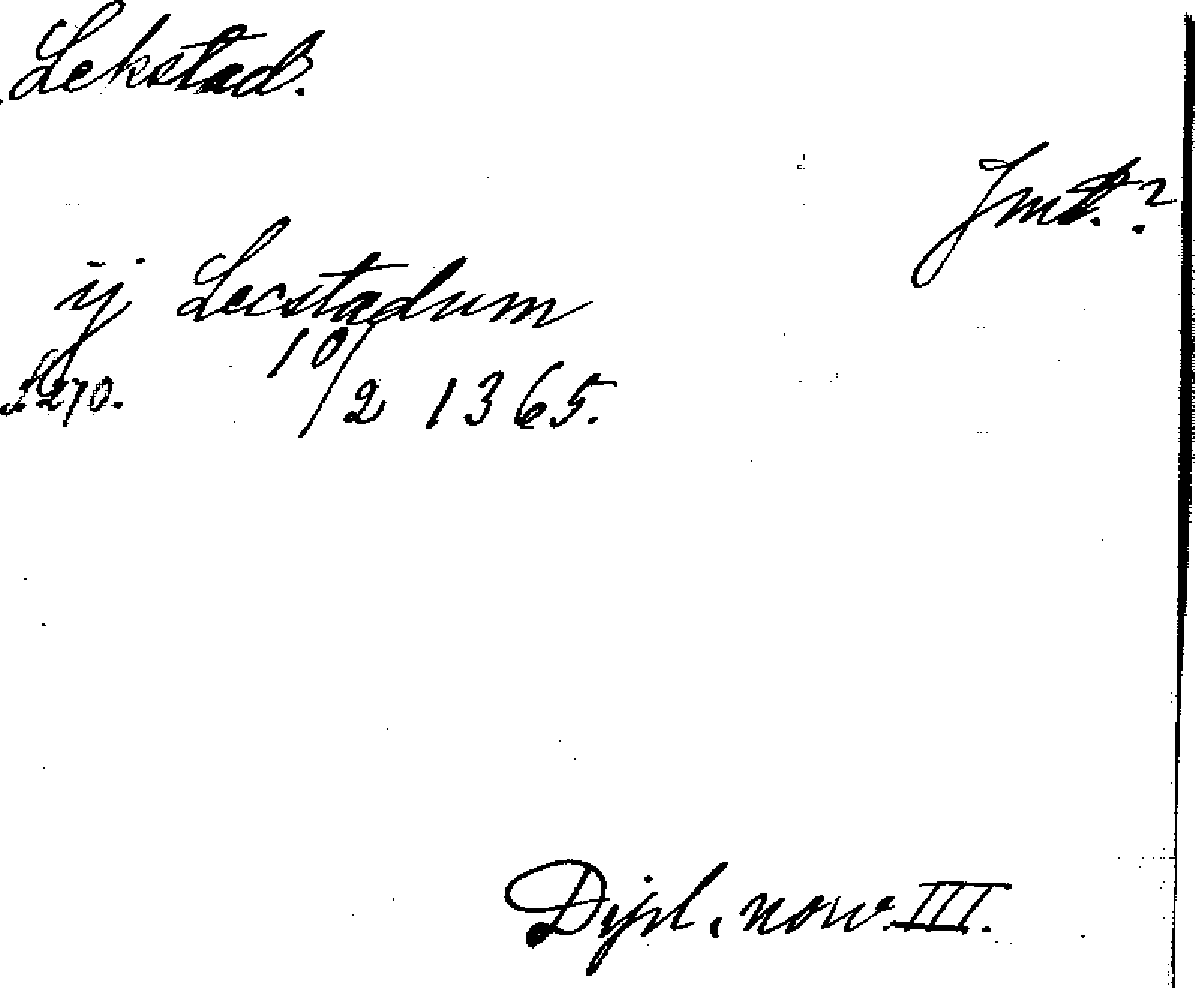 Lekstad.
Jmt.?
ij Lecstadum
10/2 1365.
s 270.
Dipl. norv. III.